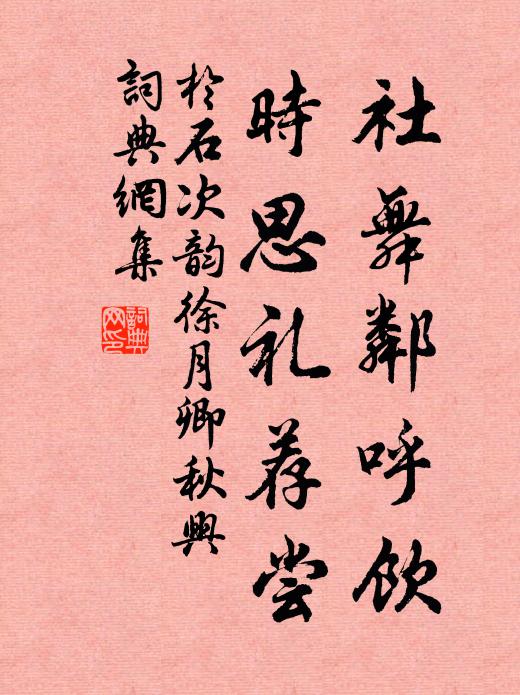 社舞鄰呼飲
時思礼荐尝
於石次韵徐月卿秋興
詞典網集
詞典网印